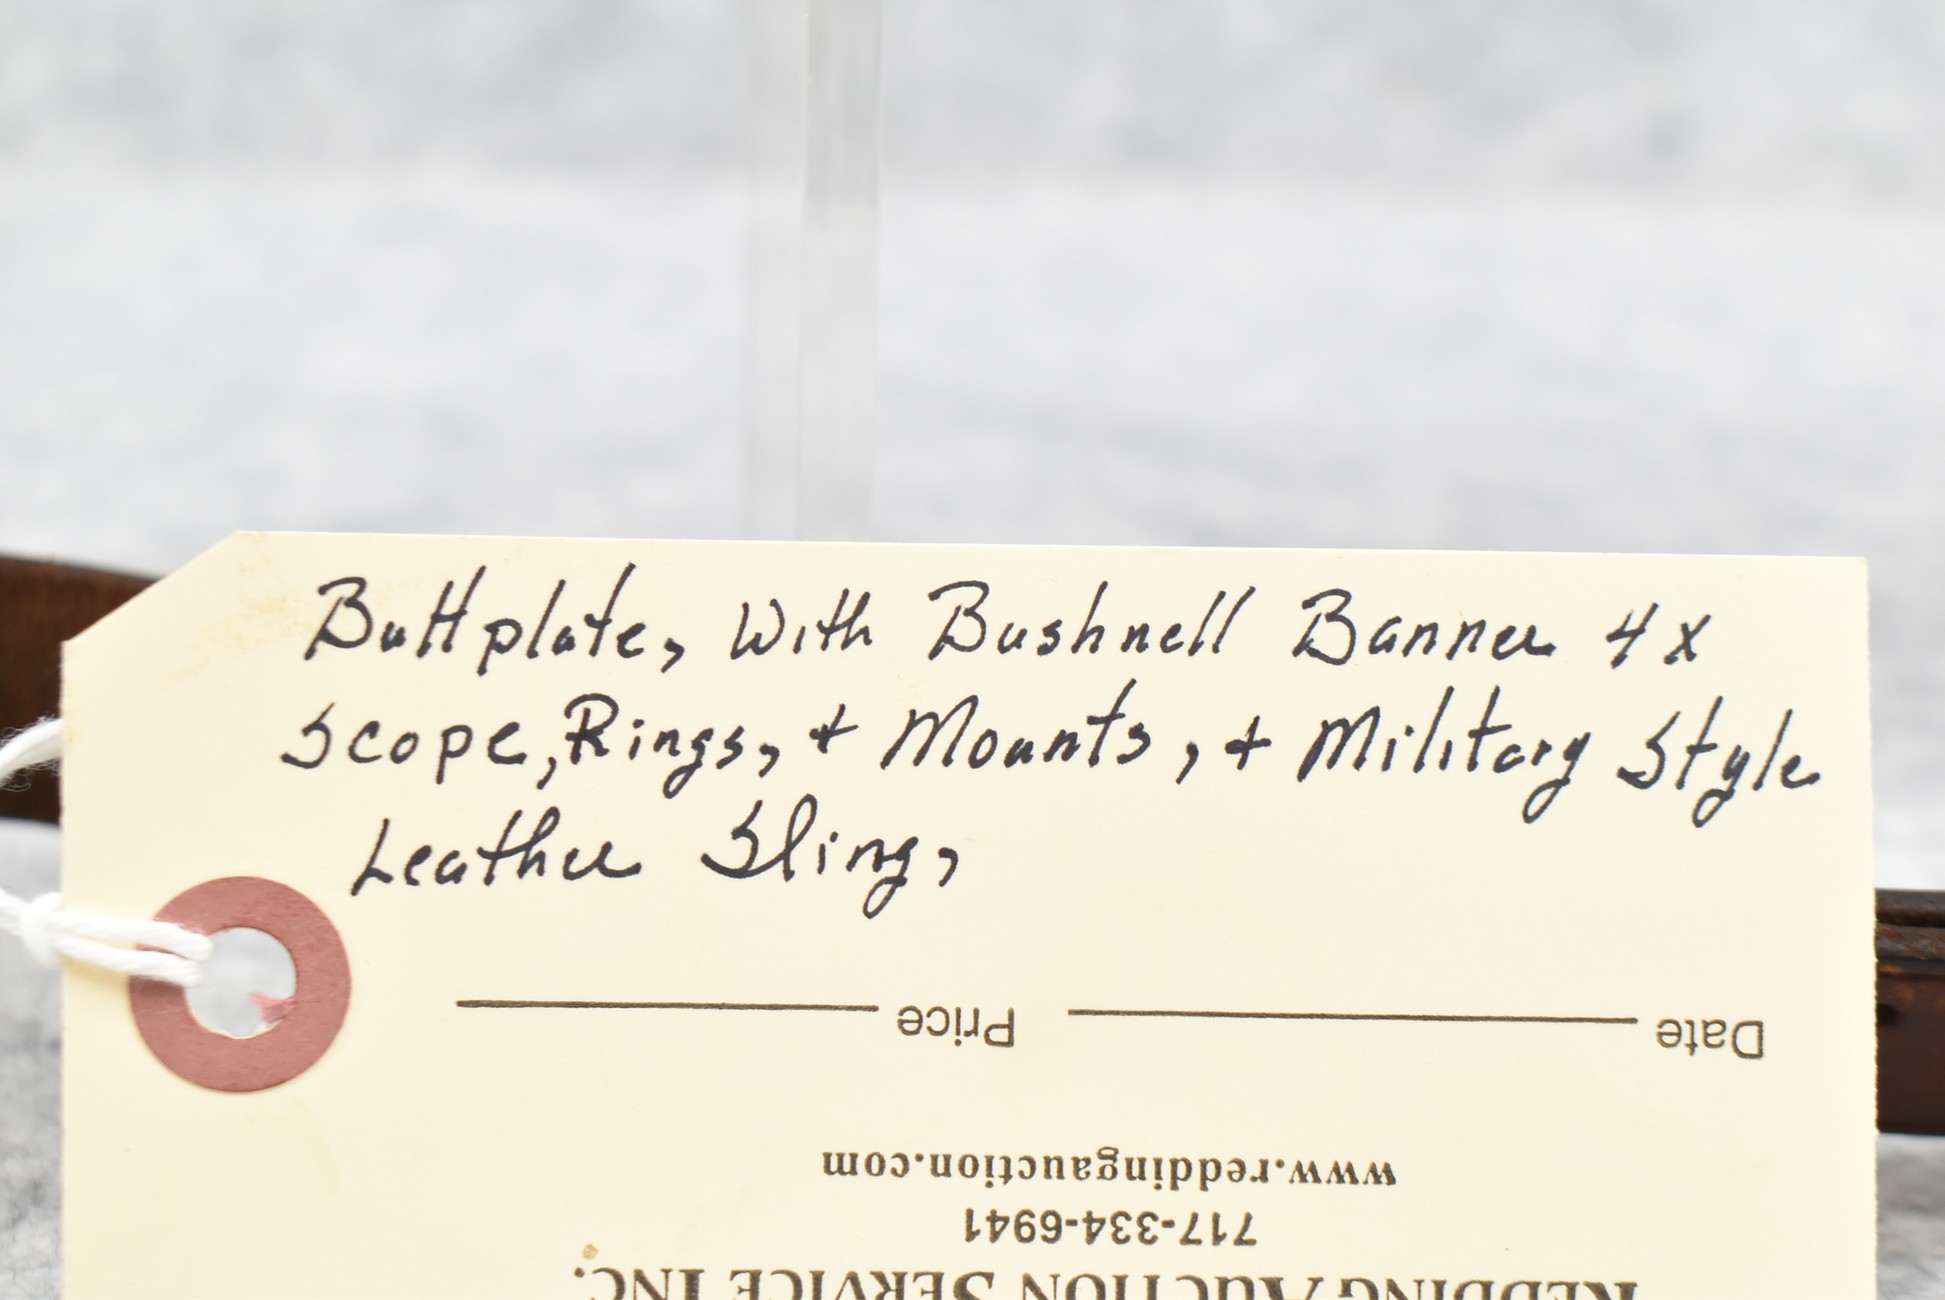 Buttplate, With Bushnell Banner 4x
Scope, Rings, + Mounts, + Military Style
Leather Sling,
Date Price
www.reddingauction.com
717-334-6941
REDDING AUCTION SERVICE INC.